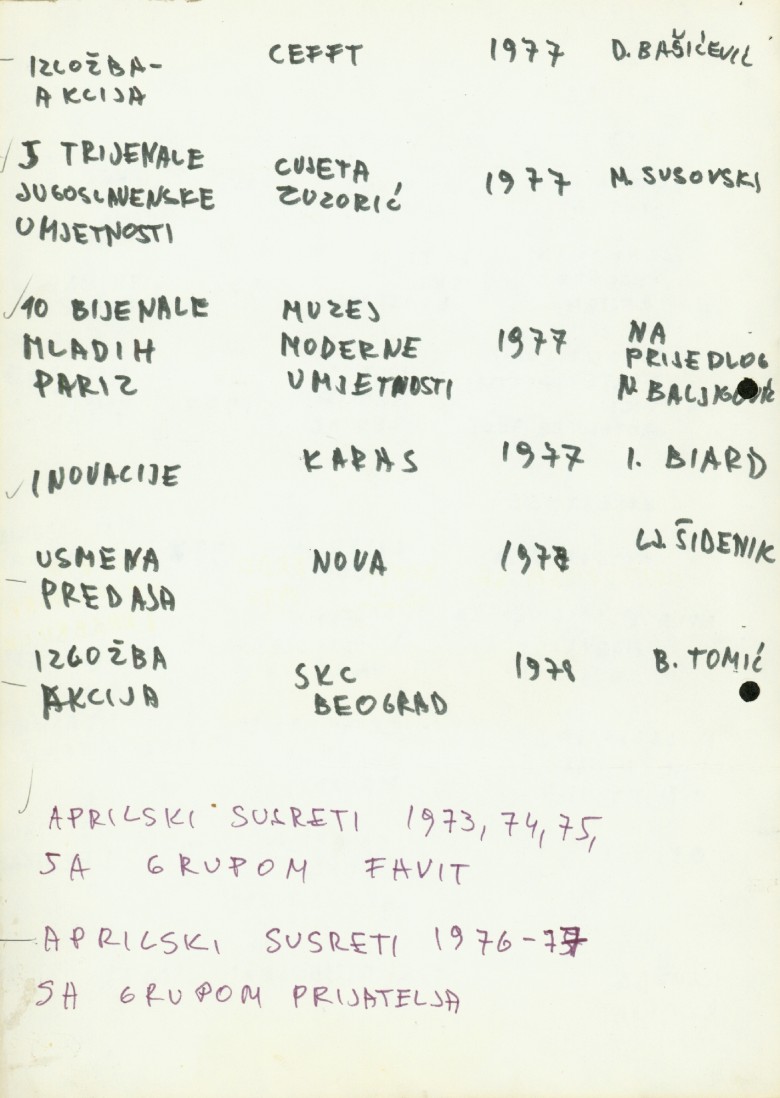 IZLOŽBA- CEFFT 1977 D. BAŠIČEVIĆ
AKCIJA
5 TRIJENALE CVJETA 1977 M. SUSOVSKI
JUGOSLAVENSKE ZUZORIĆ
UMJETNOSTI
10 BIJENALE MUZEJ 1977 NA
MLADIH MODERNE PRIJEDLOG
PARIZ UMJETNOSTI
INOVACIJE KARAS 1977 I. BIARD
USMENA NOVA 1978 LJ. ŠIDENIK
PREDAJA
IZLOŽBA SKC 1978 B. TOMIĆ
AKCIJA BEOGRAD
APRILSKI SUSRETI 1973, 74, 75,
SA GRUPOM FAVIT
APRILSKI SUSRETI 1976-77
SA GRUPOM PRIJATELJA